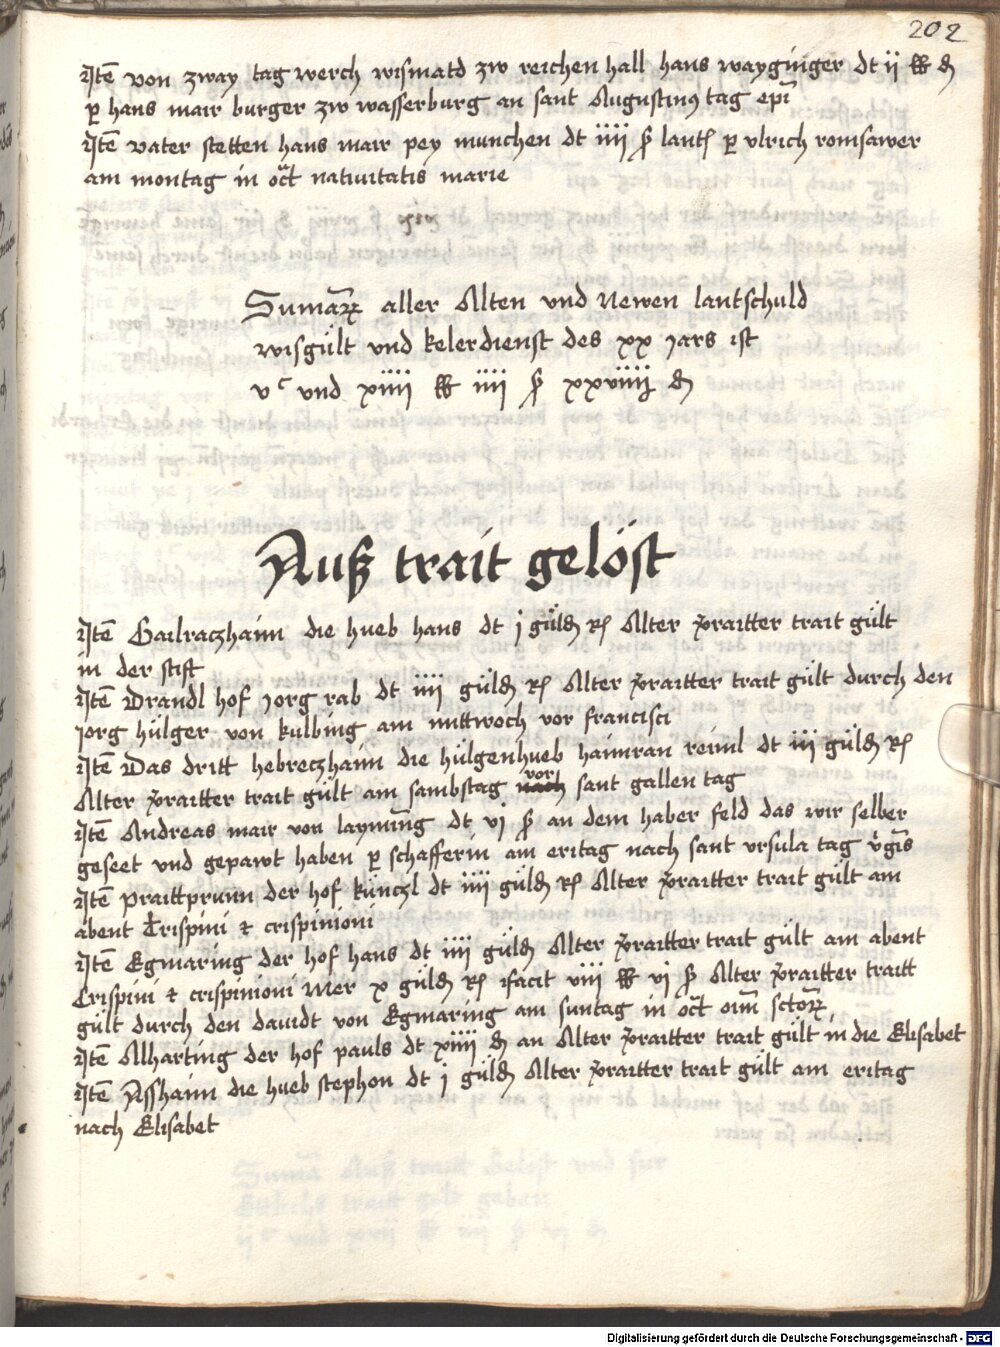 202
Itē von zway tag werch wismatd zw reichenhall hans wayginger dt ij ℔ ₰
ꝑ hans mair burger zw wasserburg an sant Augustinꝰ tag ep̄i
Itē vater stetten hans mair pey munchen dt iiij ß lantß ꝑ vlrich romsawer
am montag in oct̄ nativitatis marie
Sumaꝝ aller Alten vnd Newen lantschuld
wisgült vnd kelerdienst des xx jars ist
vᶜ vnd xiiij ℔ iiij ß xxviiij ₰
Auß trait gelöst
Itē Gailraczhaim die hueb hans dt j güld rh Alter praitter trait gült
in der stift
Itē Brandl hof Jorg rab dt iiij güld rh Alter praitter trait gült durch den
Jorg hülger von kulbing am mittwoch vor francisci
Itē Das dritt hebreczhaim die hülgenhueb haimran reiml dt iij güld rh
Alter praitter trait gült am sambstag nach vor sant gallen tag
Itē Andreas mair von laymīng dt vj ß an dem haber feld das wir selber
geseet vnd gepawt haben ꝑ schafferin am eritag nach sant vrsula tag v̊gīs
Itē praittprunn der hof künczl dt iiij güld rh Alter praitter trait gült am
abent Crispini et crispinioni
Itē Egmaring der hof hans dt iiij güld Alter praitter trait gült am abent
Crispini et crispinioni Mer x güld rh facit viij ℔ vj ß Alter praitter traitt
gült durch den dauidt von Egmaring am suntag in oct̄ oīm sctoꝝ
Itē Alharting der hof pauls dt xiiij ₰ an Alter praitter trait gült in die Elisabet
Itē Asshaim die hueb stephon dt j güld Alter praitter trait gült am eritag
nach Elisabet
Digitalisierung gefördert durch die Deutsche Forschungsgemeinschaft - DFG